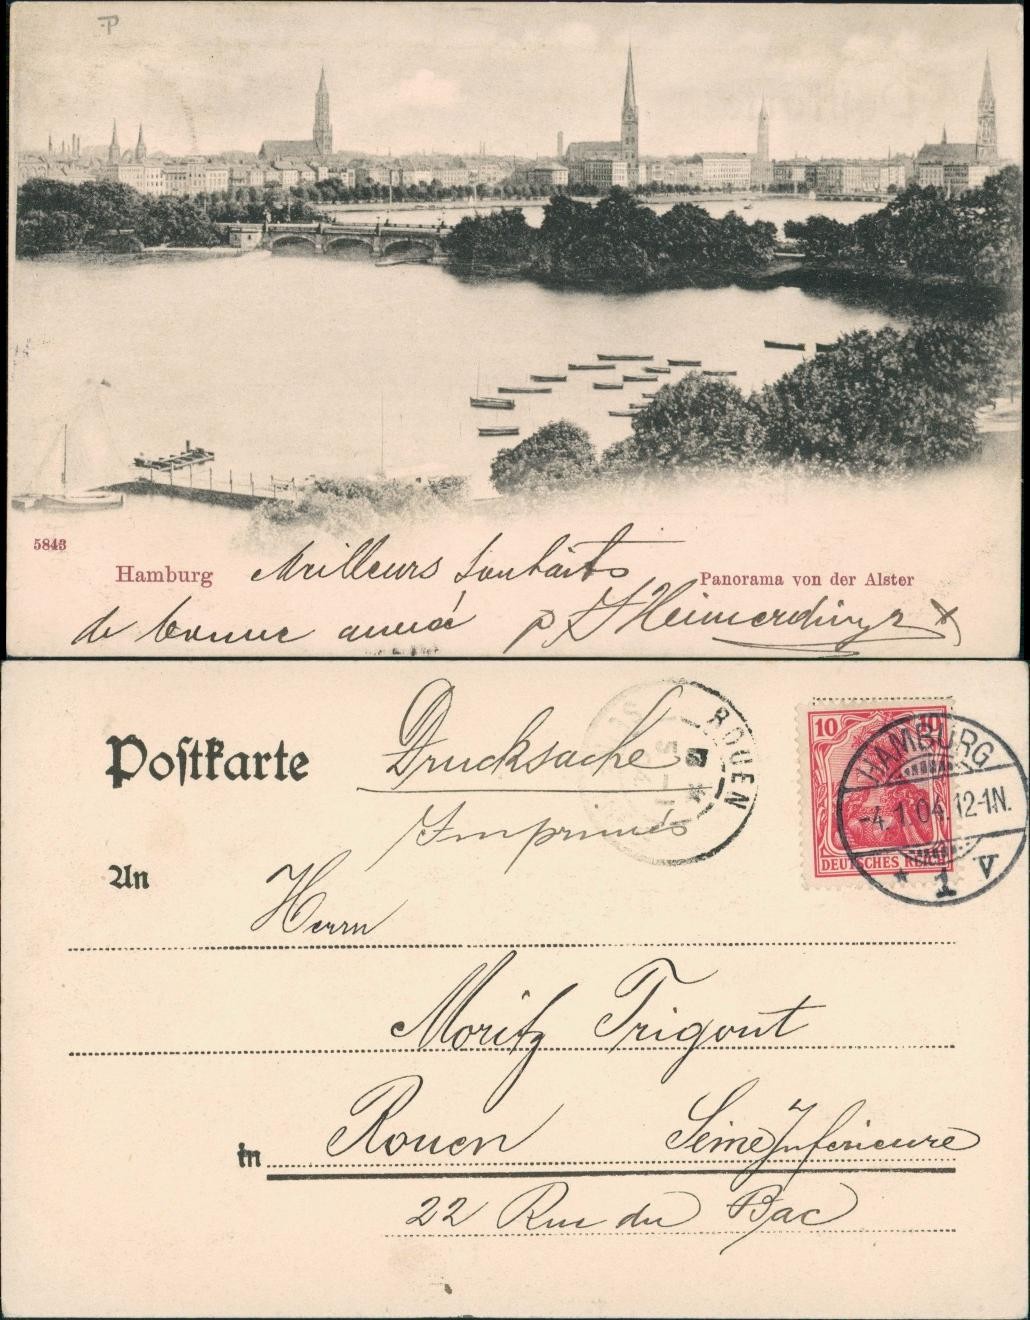 P
5843
Hamburg
Meilleurs Souhaits
Panorama von der Alster
de bonne année p. Heimerdinger
Postkarte
Drucksache
Imprimés
ROUEN
10 10
DEUTSCHES REICH
HAMBURG
-4.1.04.12-1N.
* 1 V
An
Herrn
Moritz Trigout
in Rouen Seine Inferieure
22 Rue du Bac